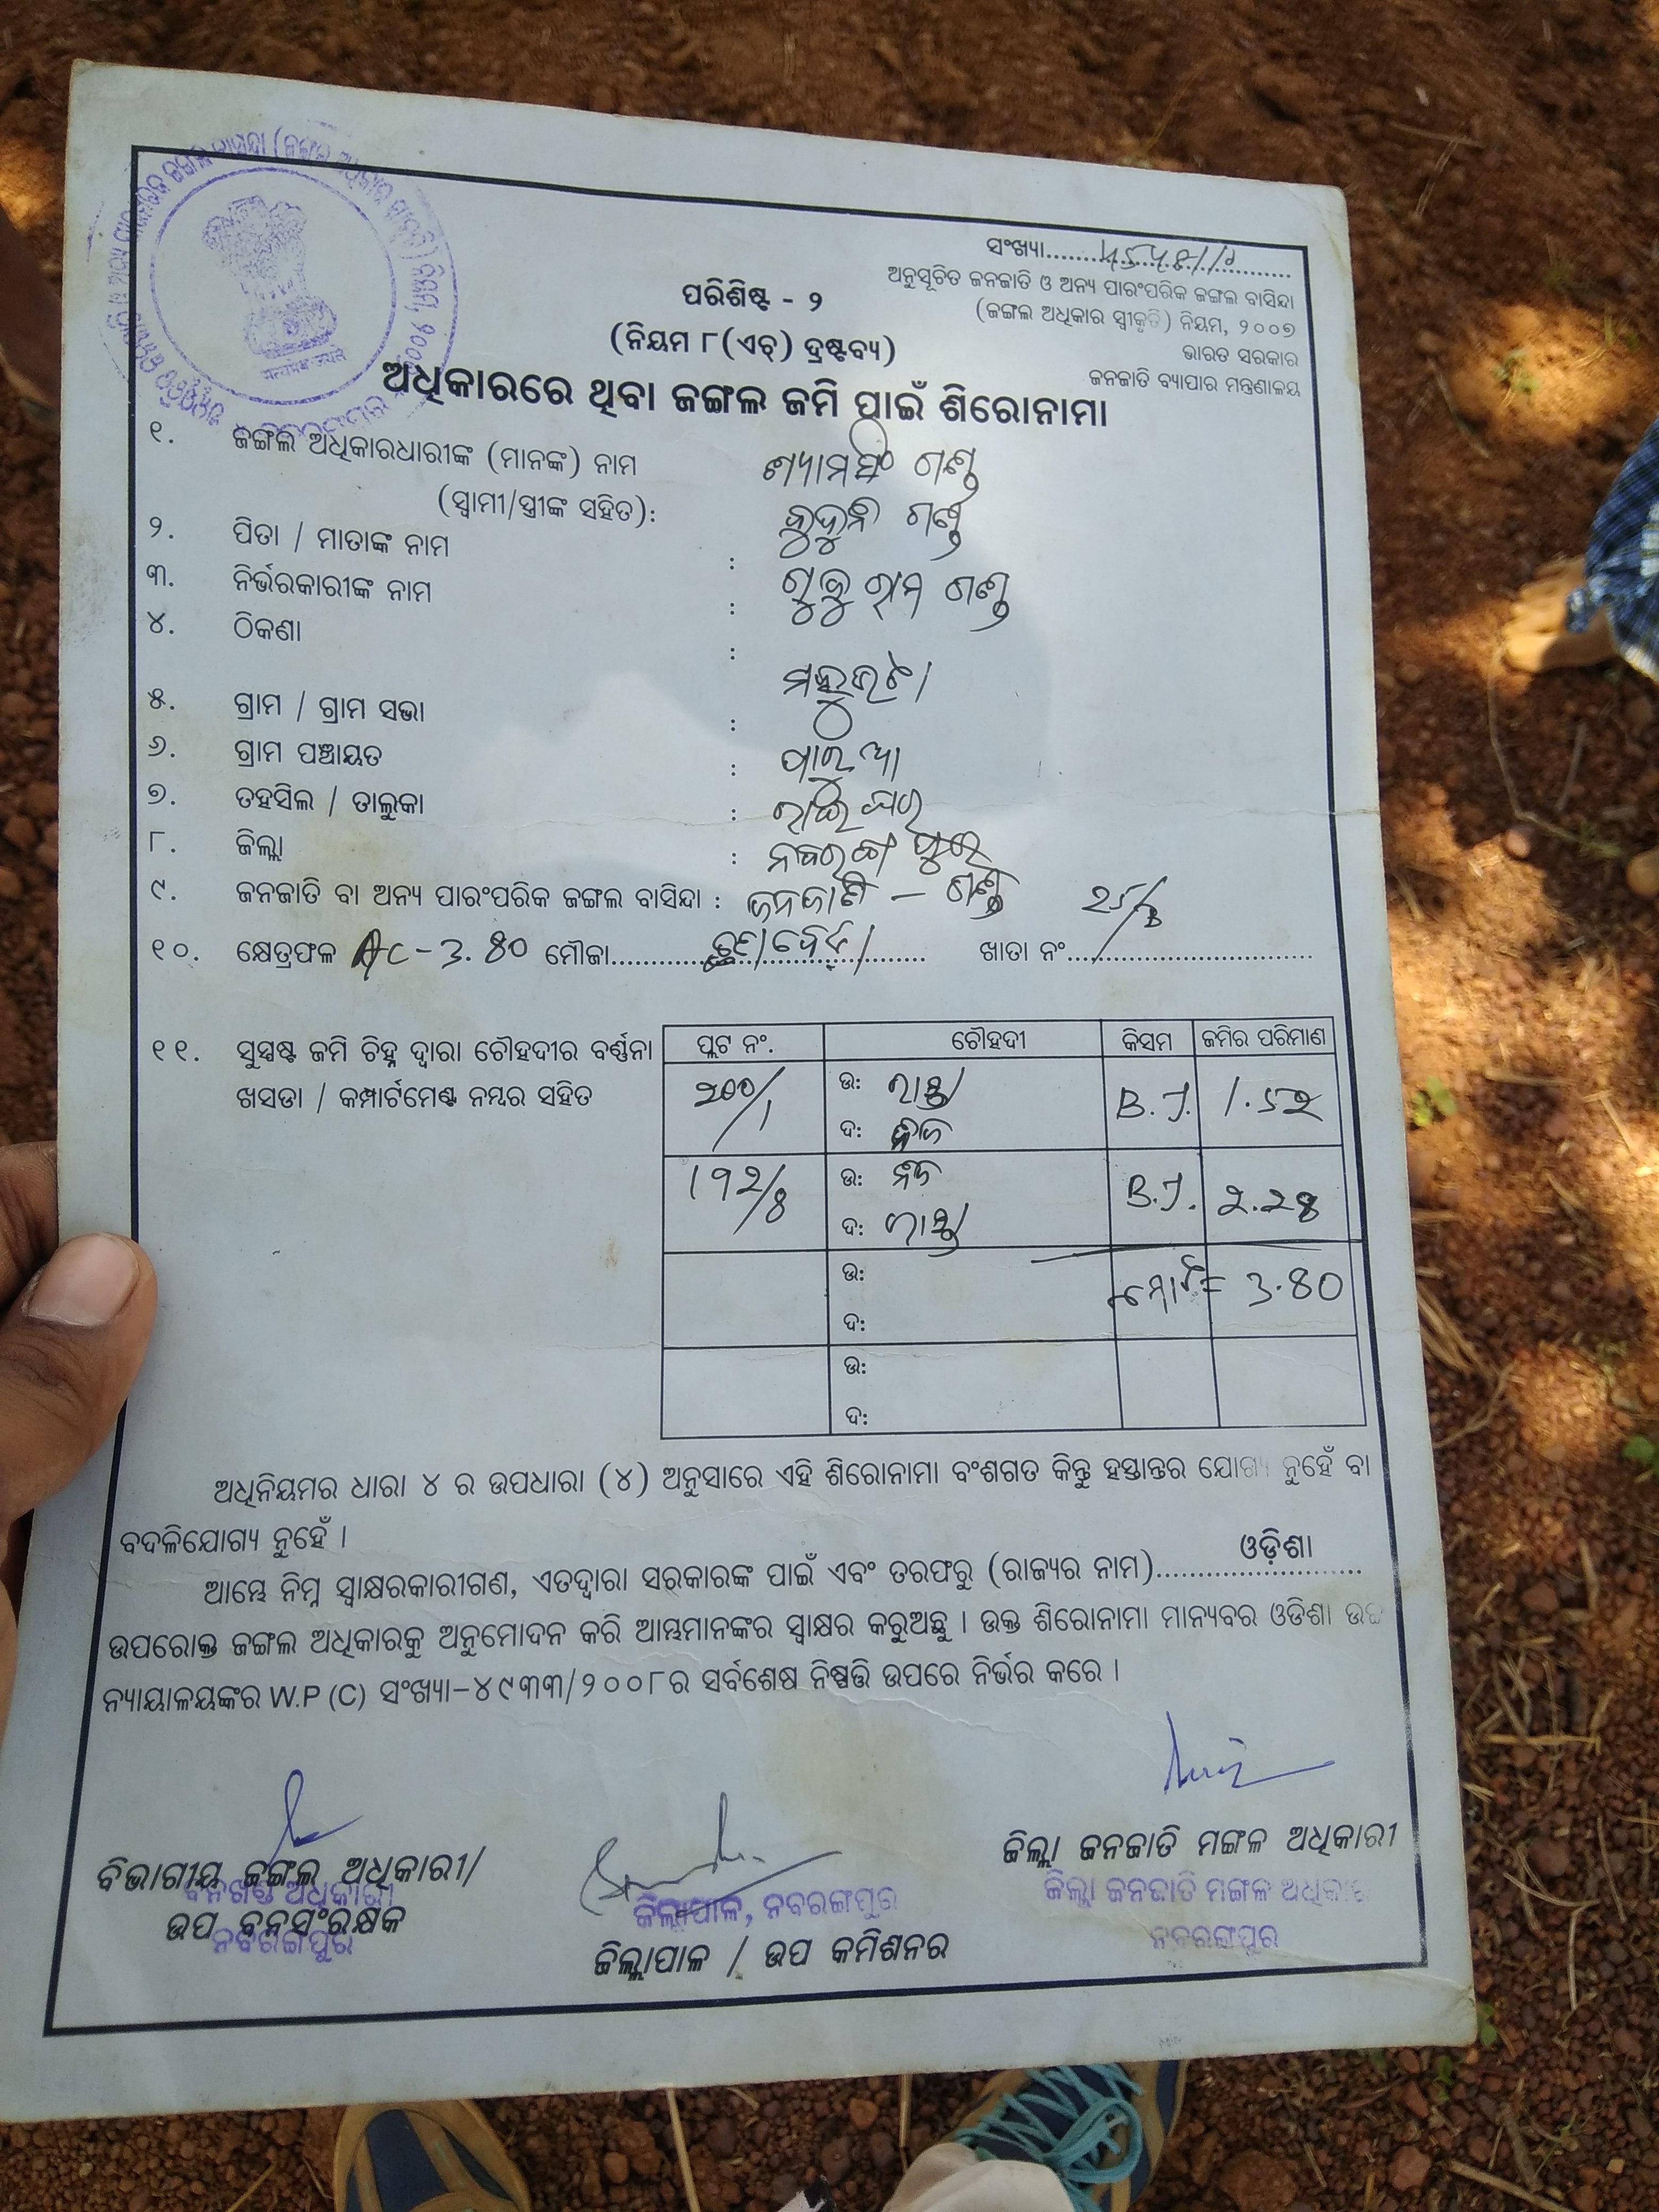 ସଂଖ୍ୟା....................
ଅନୁସୂଚିତ ଜନଜାତି ଓ ଅନ୍ୟ ପାରଂପରିକ ଜଙ୍ଗଲ ବାସିନ୍ଦା
(ଜଙ୍ଗଲ ଅଧିକାର ସ୍ୱୀକୃତି) ନିୟମ, ୨୦୦୭
ଭାରତ ସରକାର
ଜନଜାତି ବ୍ୟାପାର ମନ୍ତ୍ରଣାଳୟ
ପରିଶିଷ୍ଟ - ୨
(ନିୟମ ୮(ଏଚ୍) ଦ୍ରଷ୍ଟବ୍ୟ)
ଅଧିକାରରେ ଥିବା ଜଙ୍ଗଲ ଜମି ପାଇଁ ଶିରୋନାମା
୧. ଜଙ୍ଗଲ ଅଧିକାରଧାରୀଙ୍କ (ମାନଙ୍କ) ନାମ ଶ୍ୟାମସିଂ ଗଣ୍ଡ
(ସ୍ୱାମୀ/ସ୍ତ୍ରୀଙ୍କ ସହିତ):
୨. ପିତା / ମାତାଙ୍କ ନାମ : ଗଣ୍ଡ
୩. ନିର୍ଭରକାରୀଙ୍କ ନାମ : ରାମ ଗଣ୍ଡ
୪. ଠିକଣା :
୫. ଗ୍ରାମ / ଗ୍ରାମ ସଭା :
୬. ଗ୍ରାମ ପଞ୍ଚାୟତ :
୭. ତହସିଲ / ତାଲୁକା : ରାଇଘର
୮. ଜିଲ୍ଲା : ନବରଙ୍ଗପୁର
୯. ଜନଜାତି ବା ଅନ୍ୟ ପାରଂପରିକ ଜଙ୍ଗଲ ବାସିନ୍ଦା : ଜନଜାତି – ଗଣ୍ଡ
୧୦. କ୍ଷେତ୍ରଫଳ AC-3.80 ମୌଜା.................... ଖାତା ନଂ....................
୧୧. ସୁସ୍ପଷ୍ଟ ଜମି ଚିହ୍ନ ଦ୍ୱାରା ଚୌହଦୀର ବର୍ଣ୍ଣନା
ଖସଡା / କମ୍ପାର୍ଟମେଣ୍ଟ ନମ୍ବର ସହିତ
ପ୍ଲଟ ନଂ. ଚୌହଦୀ କିସମ ଜମିର ପରିମାଣ
200/1 ଉ: ରାସ୍ତା B.J. 1.52
ଦ:
192/8 ଉ: B.J. 2.28
ଦ: ରାସ୍ତା
ଉ: ମୋଟ = 3.80
ଦ:
ଉ:
ଦ:
ଅଧିନିୟମର ଧାରା ୪ ର ଉପଧାରା (୪) ଅନୁସାରେ ଏହି ଶିରୋନାମା ବଂଶଗତ କିନ୍ତୁ ହସ୍ତାନ୍ତର ଯୋଗ୍ୟ ନୁହେଁ ବା
ବଦଳିଯୋଗ୍ୟ ନୁହେଁ ।
ଆମ୍ଭେ ନିମ୍ନ ସ୍ୱାକ୍ଷରକାରୀଗଣ, ଏତଦ୍ୱାରା ସରକାରଙ୍କ ପାଇଁ ଏବଂ ତରଫରୁ (ରାଜ୍ୟର ନାମ)..........ଓଡ଼ିଶା..........
ଉପରୋକ୍ତ ଜଙ୍ଗଲ ଅଧିକାରକୁ ଅନୁମୋଦନ କରି ଆମ୍ଭମାନଙ୍କର ସ୍ୱାକ୍ଷର କରୁଅଛୁ । ଉକ୍ତ ଶିରୋନାମା ମାନ୍ୟବର ଓଡିଶା
ନ୍ୟାୟାଳୟଙ୍କର W.P (C) ସଂଖ୍ୟା-୪୯୩୩/୨୦୦୮ର ସର୍ବଶେଷ ନିଷ୍ପତ୍ତି ଉପରେ ନିର୍ଭର କରେ ।
ବିଭାଗୀୟ ଜଙ୍ଗଲ ଅଧିକାରୀ/
ଉପ ବନସଂରକ୍ଷକ
ବନଖଣ୍ଡ ଅଧିକାରୀ
ନବରଙ୍ଗପୁର
ଜିଲ୍ଲାପାଳ, ନବରଙ୍ଗପୁର
ଜିଲ୍ଲାପାଳ / ଉପ କମିଶନର
ଜିଲ୍ଲା ଜନଜାତି ମଙ୍ଗଳ ଅଧିକାରୀ
ଜିଲ୍ଲା ଜନଜାତି ମଙ୍ଗଳ ଅଧିକାରୀ
ନବରଙ୍ଗପୁର